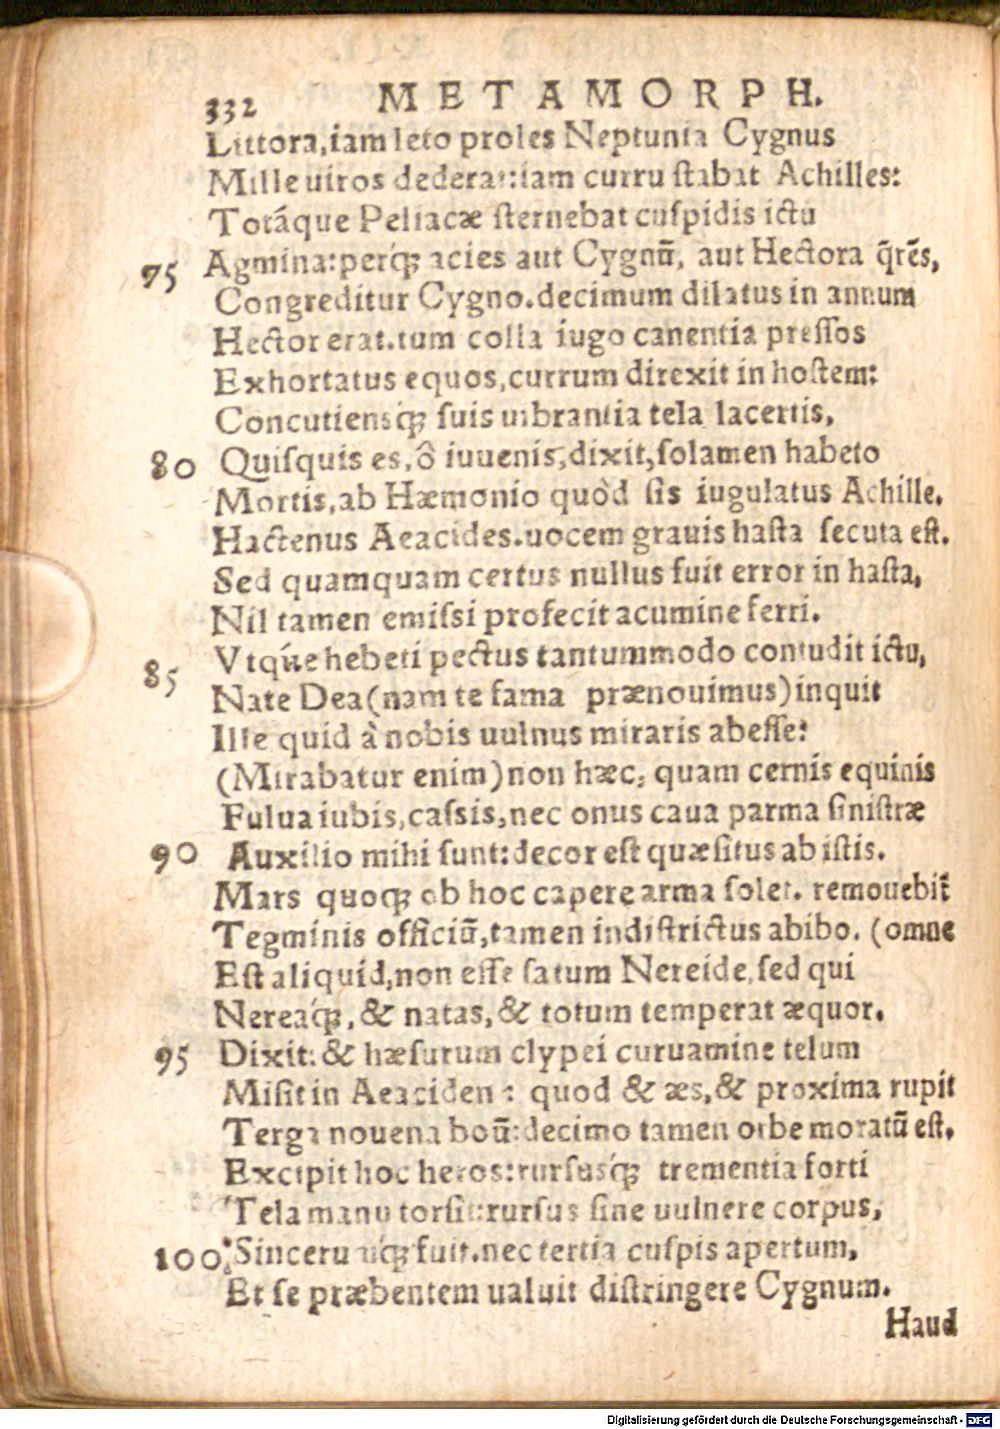 332 METAMORPH.
Littora,iam leto proles Neptunia Cygnus
Mille uiros dederat:iam curru stabat Achilles:
Totáque Peliacæ sternebat cuspidis ictu
75 Agmina:perq́ꝫ acies aut Cygnũ, aut Hectora q̃rẽs,
Congreditur Cygno.decimum dilatus in annum
Hector erat.tum colla iugo canentia pressos
Exhortatus equos,currum direxit in hostem:
Concutiensq́ꝫ suis uibrantia tela lacertis,
80 Quisquis es,ô iuuenis,dixit,solamen habeto
Mortis,ab Hæmonio quòd sis iugulatus Achille.
Hactenus Aeacides.uocem grauis hasta secuta est.
Sed quamquam certus nullus fuit error in hasta,
Nil tamen emissi profecit acumine ferri.
85 Vtq́ue hebeti pectus tantummodo contudit ictu,
Nate Dea(nam te fama prænouimus)inquit
Ille quid à nobis uulnus miraris abesse?
(Mirabatur enim)non hæc, quam cernis equinis
Fulua iubis,cassis,nec onus caua parma sinistræ
90 Auxilio mihi sunt:decor est quæsitus ab istis.
Mars quoqꝫ ob hoc capere arma solet. remouebit̃
Tegminis officiũ,tamen indistrictus abibo. (omne
Est aliquid,non esse satum Nereide,sed qui
Nereaq́ꝫ,& natas,& totum temperat æquor.
95 Dixit:& hæsurum clypei curuamine telum
Misit in Aeaciden: quod & æs,& proxima rupit
Terga nouena boũ:decimo tamen orbe moratũ est.
Excipit hoc heros:rursusq́ꝫ trementia forti
Tela manu torsit:rursus sine uulnere corpus,
100 Sincerumq́ꝫ fuit.nec tertia cuspis apertum,
Et se præbentem ualuit distringere Cygnum.
Haud
Digitalisierung gefördert durch die Deutsche Forschungsgemeinschaft - DFG